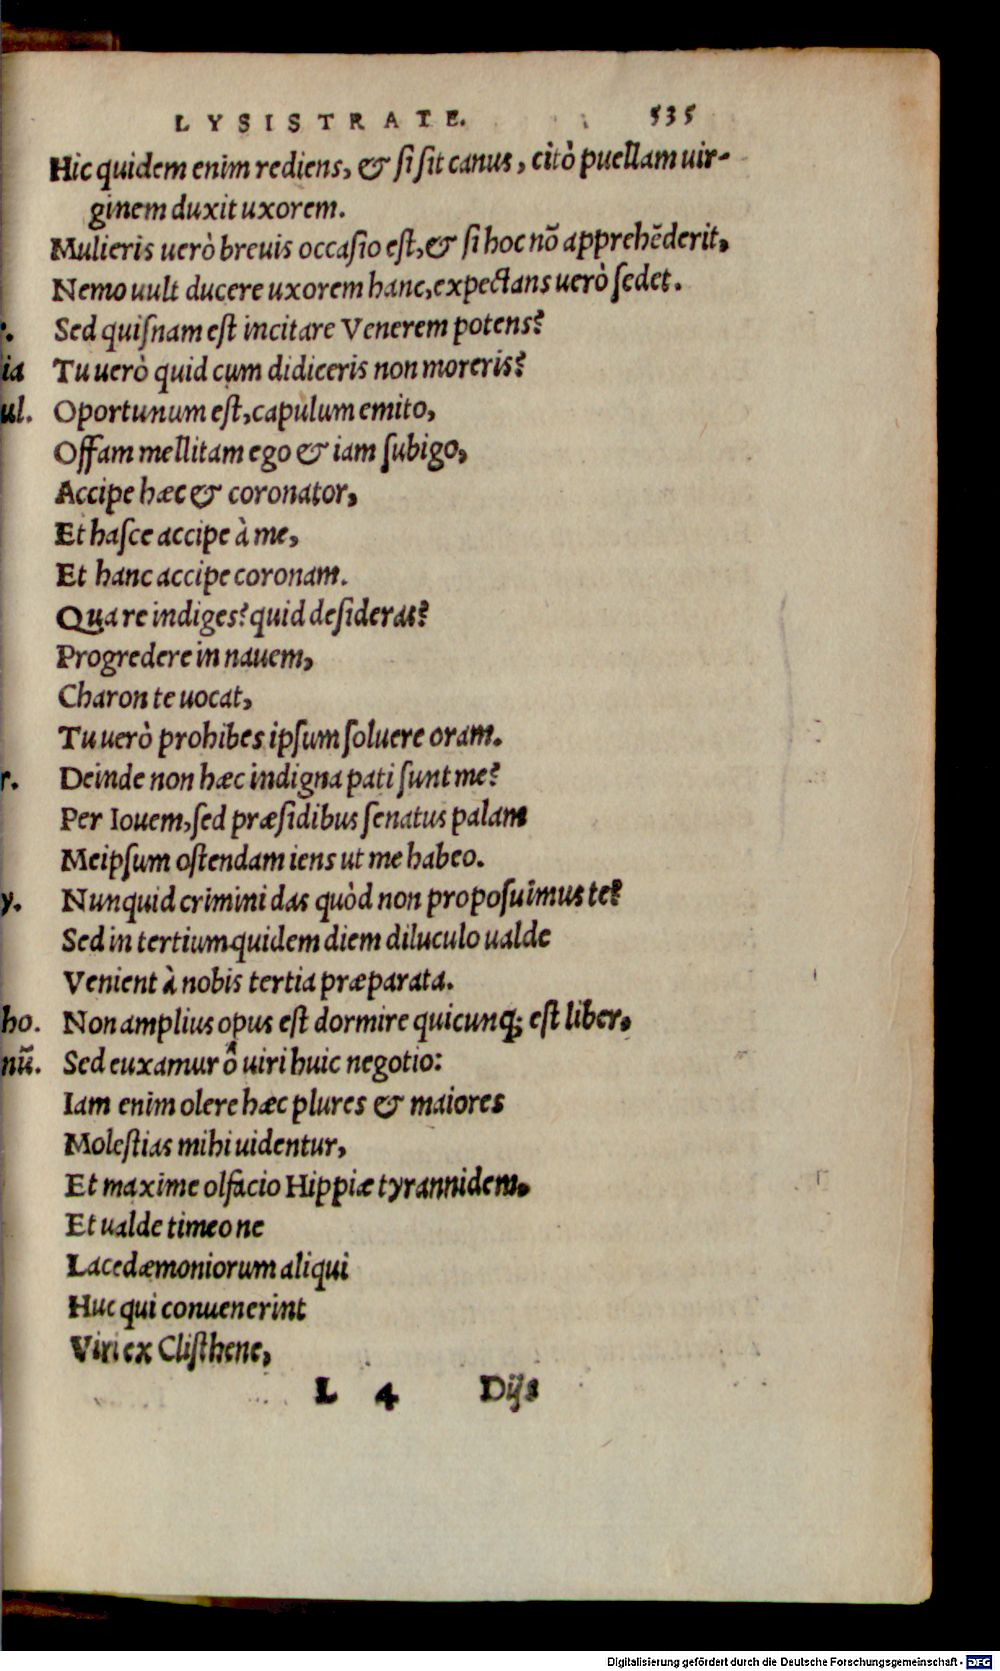 LYSISTRATE. 535
Hic quidem enim rediens, & si sit canus, citò puellam uir-
ginem duxit uxorem.
Mulieris uerò breuis occasio est, & si hoc nō apprehēderit,
Nemo uult ducere uxorem hanc, expectans uerò sedet.
r. Sed quisnam est incitare Venerem potens?
ia Tu uerò quid cum didiceris non moreris?
ul. Oportunum est, capulum emito,
Offam mellitam ego & iam subigo,
Accipe hæc & coronator,
Et hasce accipe à me,
Et hanc accipe coronam.
Qua re indiges? quid desideras?
Progredere in nauem,
Charon te uocat,
Tu uerò prohibes ipsum soluere oram.
r. Deinde non hæc indigna pati sunt me?
Per Iouem, sed præsidibus senatus palam
Meipsum ostendam iens ut me habeo.
y. Nunquid crimini das quòd non proposuimus te?
Sed in tertium quidem diem diluculo ualde
Venient à nobis tertia præparata.
ho. Non amplius opus est dormire quicunq; est liber,
nū. Sed euxamur ô uiri huic negotio:
Iam enim olere hæc plures & maiores
Molestias mihi uidentur,
Et maxime olfacio Hippiæ tyrannidem.
Et ualde timeo ne
Lacedæmoniorum aliqui
Huc qui conuenerint
Viri ex Clisthene,
L 4 Dijs
Digitalisierung gefördert durch die Deutsche Forschungsgemeinschaft - DFG